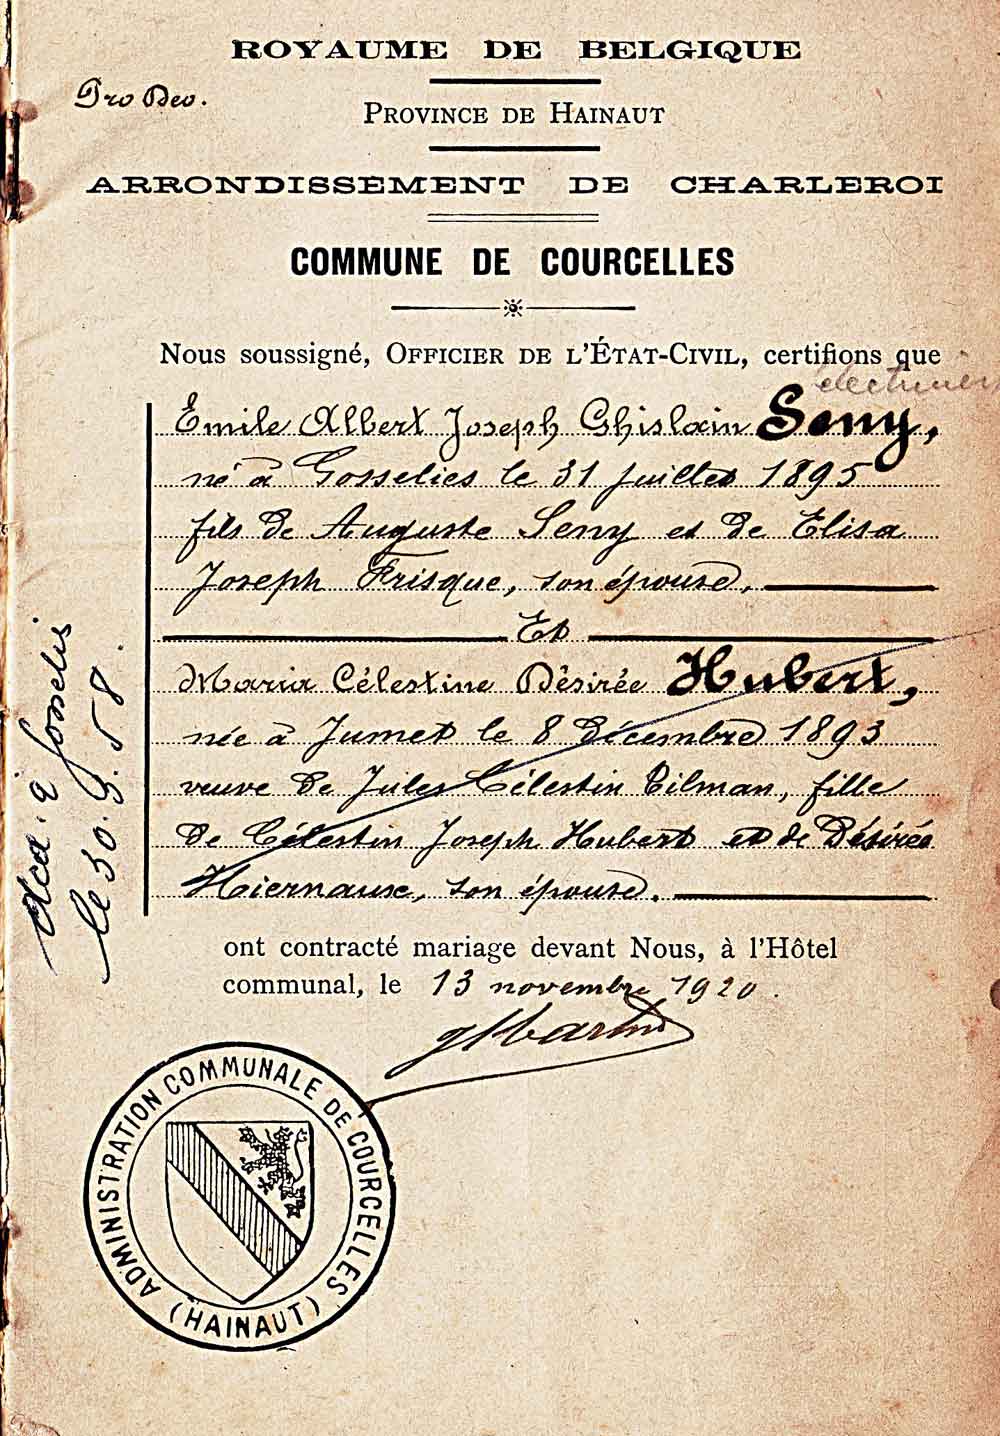 ROYAUME DE BELGIQUE
Pro Deo.
PROVINCE DE HAINAUT
ARRONDISSEMENT DE CHARLEROI
COMMUNE DE COURCELLES
Nous soussigné, OFFICIER DE L'ÉTAT-CIVIL, certifions que
Emile Albert Joseph Ghislain Seny,
né à Gosselies le 31 juillet 1895
fils de Auguste Seny et de Elisa
Joseph Frisque, son épouse,
Et
Maria Célestine Désirée Hubert,
née à Jumet le 8 Décembre 1893
veuve de Jules Célestin Tilman, fille
de Célestin Joseph Hubert et de Désirée
Hiernaux, son épouse.
ont contracté mariage devant Nous, à l'Hôtel
communal, le 13 novembre 1920.
dcd. à Gosselies
le 30.9.58.
ADMINISTRATION COMMUNALE DE COURCELLES
(HAINAUT)